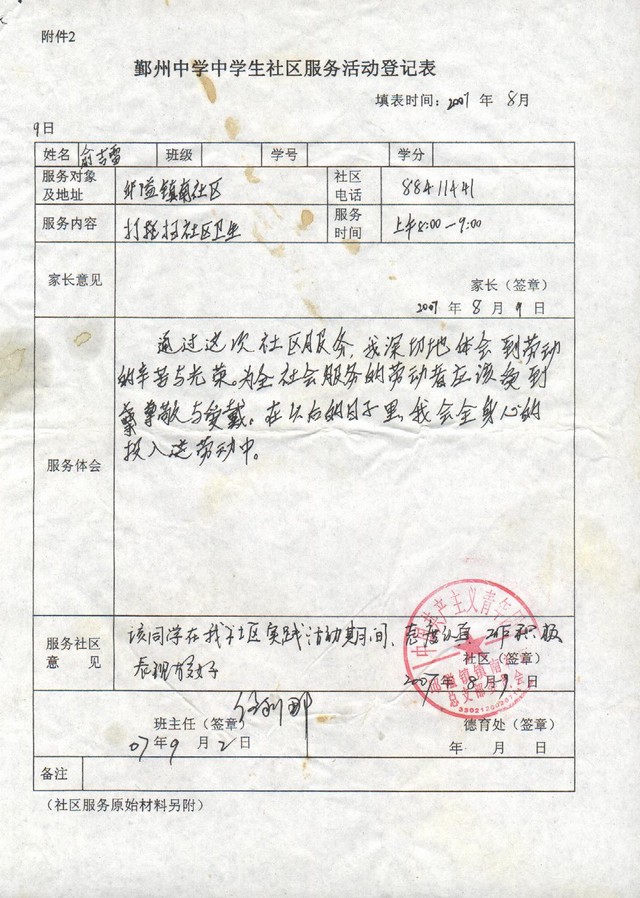 附件2
鄞州中学中学生社区服务活动登记表
填表时间：2007 年 8月
9日
姓名 俞吉雷 班级 学号 学分
服务对象及地址 邱隘镇南社区 社区电话 88411441
服务内容 打扫社区卫生 服务时间 上午8:00—9:00
家长意见
家长（签章）
2007 年 8 月 9 日
通过这次社区服务，我深切地体会到劳动
的辛苦与光荣。为全社会服务的劳动者应该受到
尊敬与爱戴。在以后的日子里，我会全身心的
服务体会
投入进劳动中。
中国共产主义青年团
服务社区意见 该同学在我社区实践活动期间，态度认真，工作积极
社区（签章）
表现好
2007年 8月9日
邱隘镇镇南
班主任（签章）
德育处（签章）
07 年 9 月 2 日
年 月 日
备注
（社区服务原始材料另附）